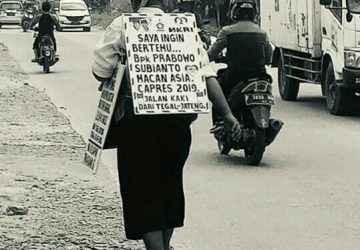 NKRI
SAYA INGIN
BERTEMU...
Bpk PRABOWO
SUBIANTO
MACAN ASIA.
CAPRES 2019
JALAN KAKI
DARI TEGAL-JATENG